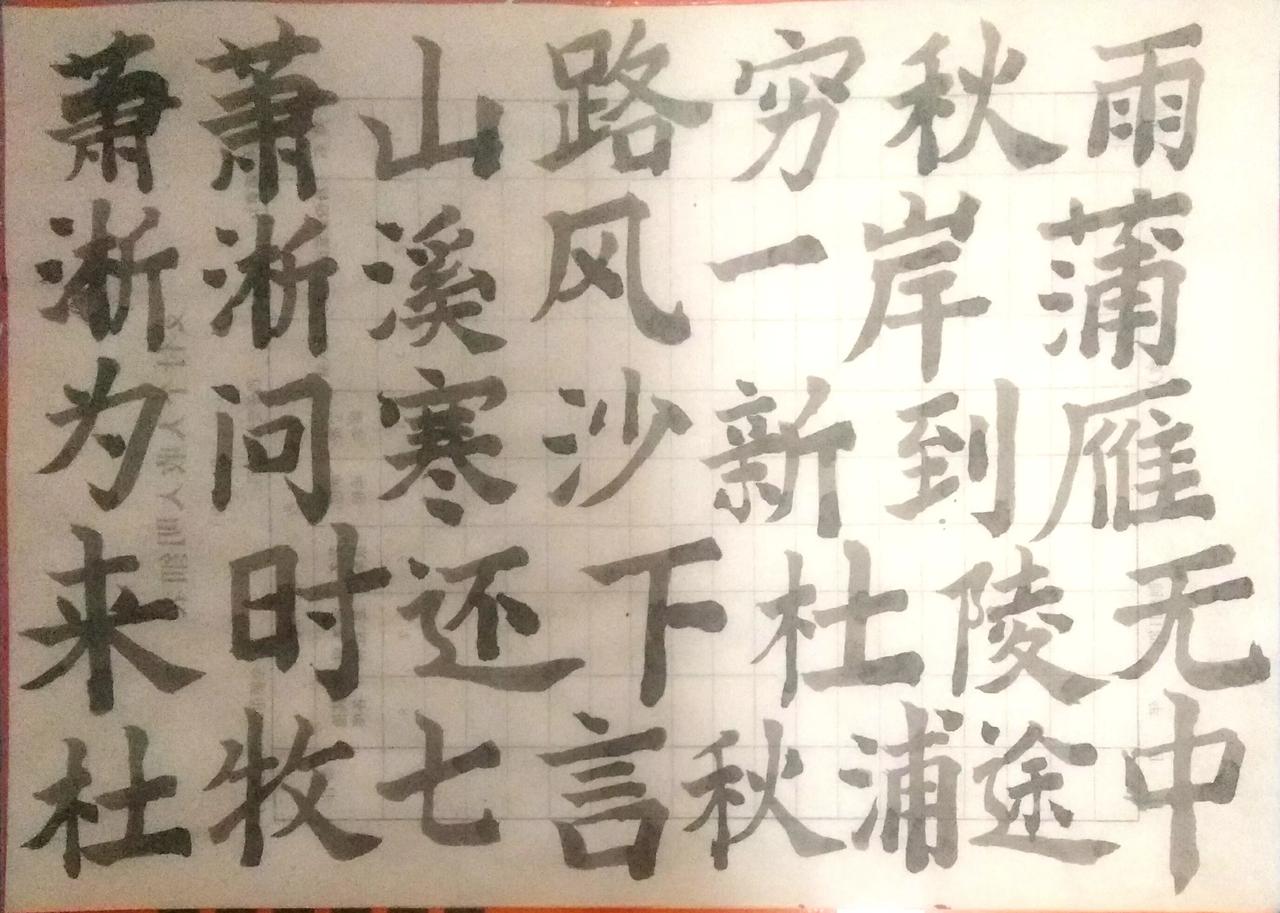 萧萧山路穷秋雨
淅淅溪风一岸蒲
为问寒沙新到雁
来时还下杜陵无
杜牧七言秋浦途中